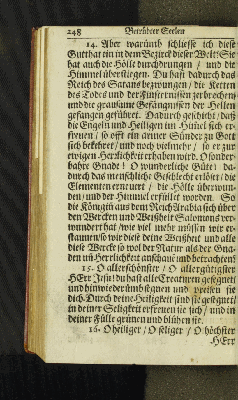 248 Betrübter Seelen
14. Aber warumb schliesse ich diese
Gutthat ein in dem Bezirck dieser Welt: Sie
hat auch die Höll durchdrungen / und die
Himmel überstiegen. Du hast dadurch das
Reich des Satans bezwungen / die Ketten
des Todes und der Finsternissen zerbrochen
und die grausame Gefängnissen der Hellen
gefangen geführet. Dadurch geschiht / daß
die Engeln und Heiligen im Himel sich er-
frewen / so offt ein armer Sünder zu Gott
sich bekehret / und noch vielmehr / so er zur
ewigen Herrlichkeit erhaben wird. O sonder-
bahre Gnade! O wunderliche Güte! da-
durch das menschliche Geschlecht erlöset / die
Elementen erneuert / die Hölle überwun-
den / und der Himmel erfüllet worden. So
die Königin aus dem Reich Arabia sich über
den Wercken und Weißheit Salomons ver-
wundert hat / wie viel mehr müssen wir er-
staunen / so wir diese deine Weißheit und alle
diese Werck so wol der Natur als der Gna-
den uñ Herrlichkeit anschauẽ und betrachten?
15. O allerschönster / O allergütigster
HErr Jesu! du hast alle Creaturen gesegnet /
und hinwieder umb segnen und preisen sie
dich. Durch deine Heiligkeit sind sie gesegnet /
in deiner Seligkeit erfreuen sie sich / und in
deiner Fülle grünen und blühen sie.
16. O heiliger / O seliger / O höchster
HErr